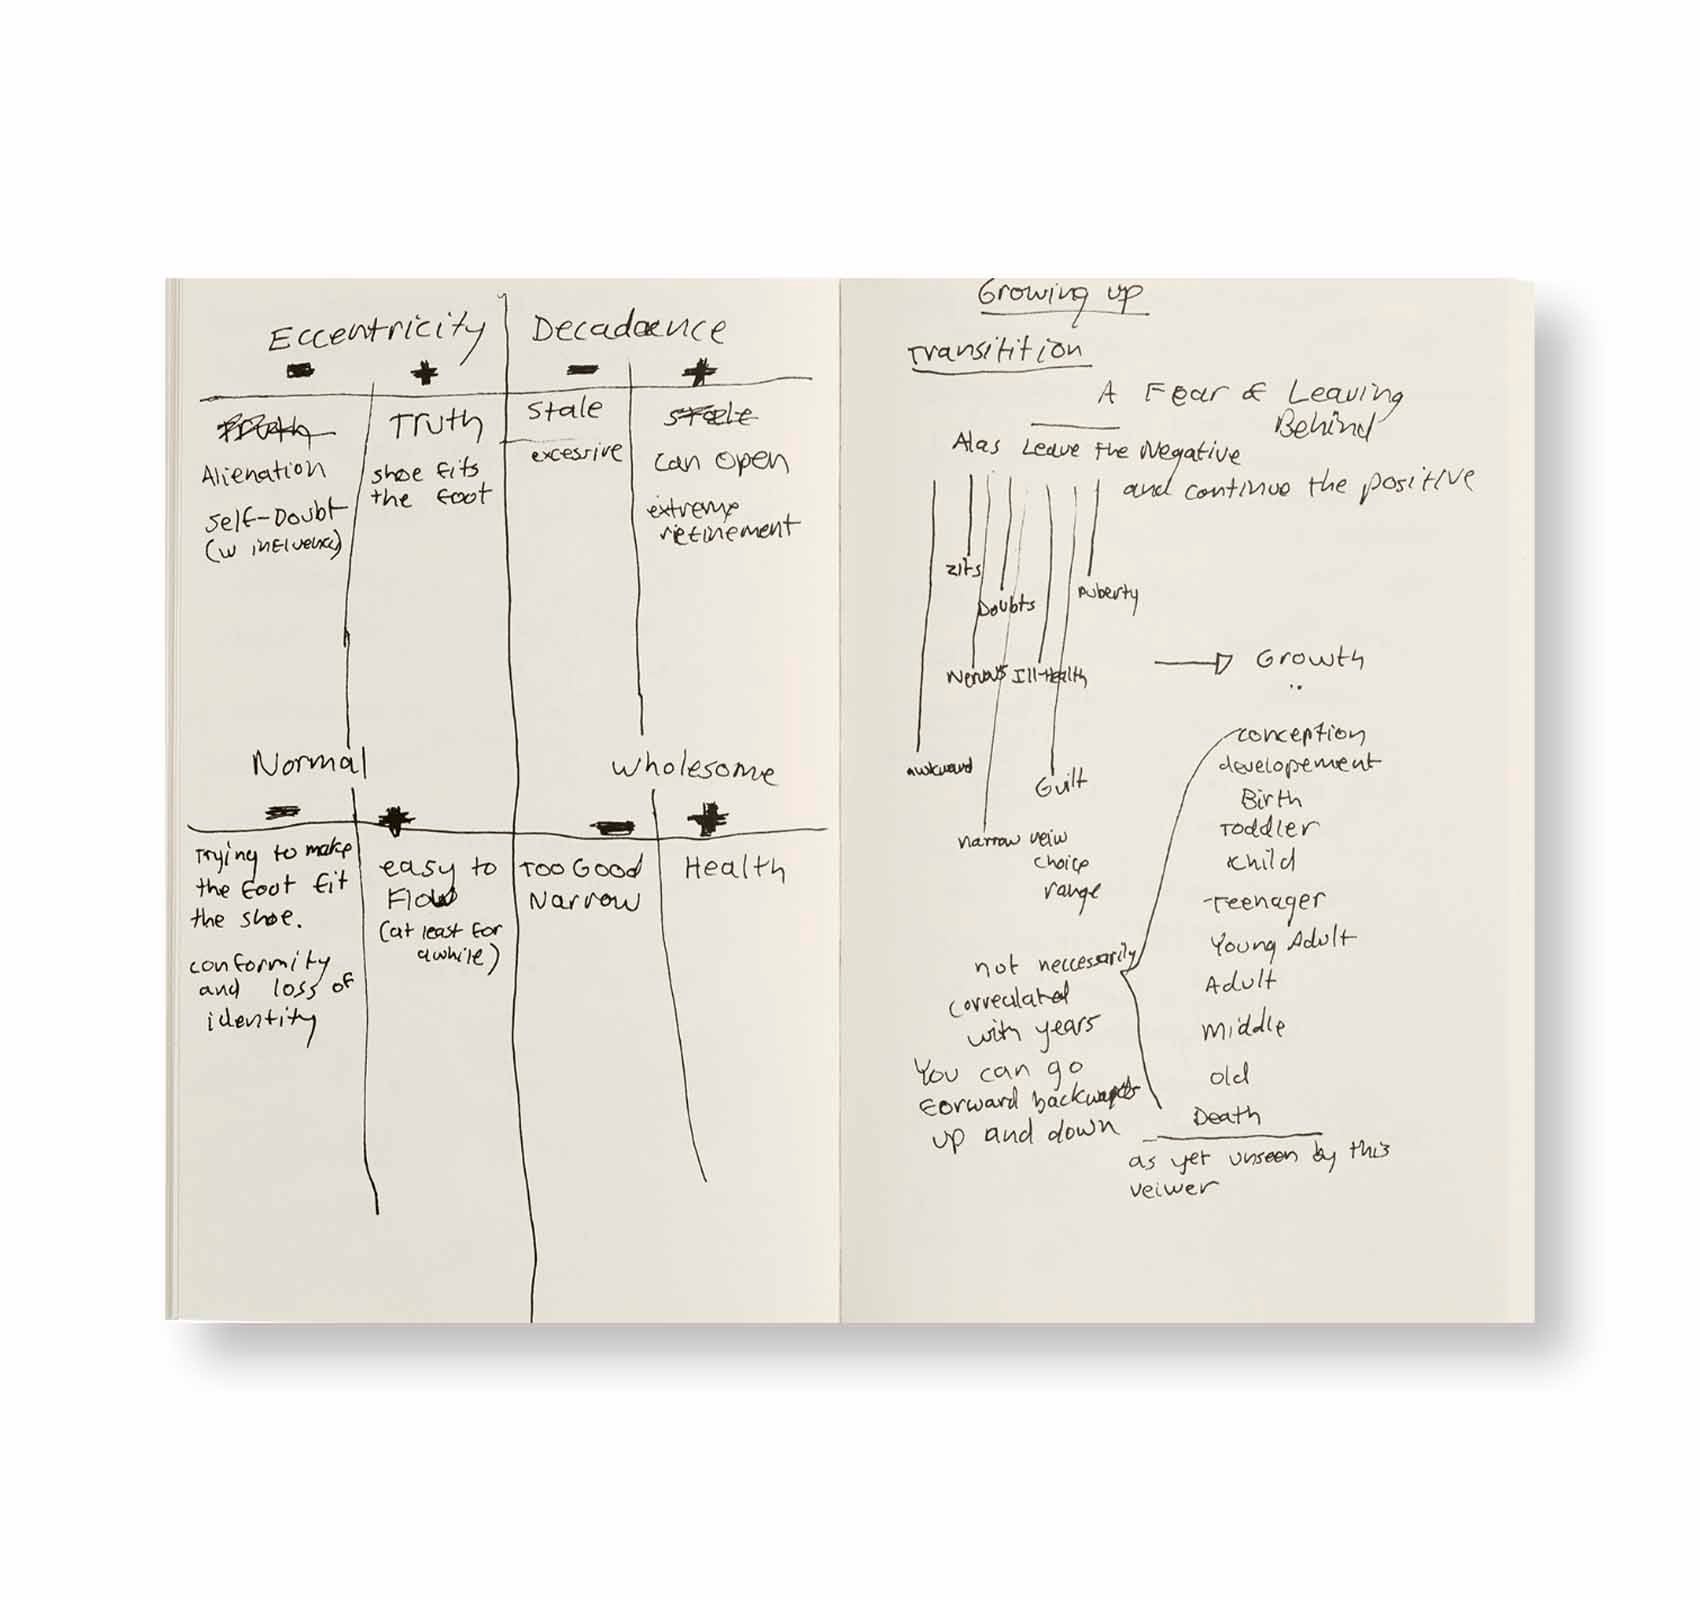 Eccentricity
- +
Alienation
Self-Doubt
(w influence)
Truth
shoe fits
the foot
Decadaence
- +
Stale
excessive
can open
extreme
refinement
Normal
- +
Trying to make
the foot fit
the shoe.
conformity
and loss of
identity
easy to
Flow
(at least for
awhile)
wholesome
- +
Too Good
Narrow
Health
Growing up
Transitition
A Fear of Leaving
Behind
Alas Leave the Negative
and continue the positive
zits
Doubts
Puberty
Nervous Ill-Health
awkward
Guilt
narrow veiw
choice
range
Growth
conception
developement
Birth
Toddler
child
Teenager
Young Adult
Adult
Middle
old
Death
as yet unseen by this
veiwer
not neccessarily
correalated
with years
You can go
Forward backwards
up and down